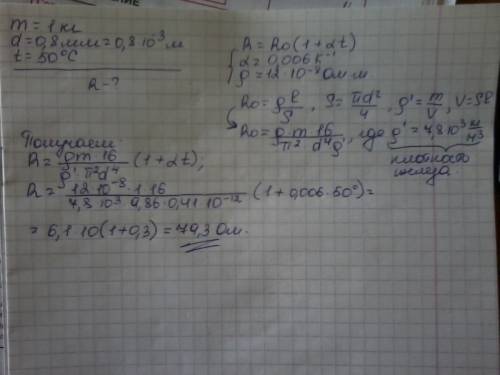 m = 1 кг
d = 0,8 мм = 0,8·10⁻³ м
t = 50°C
R - ?
R = R₀(1+αt)
α = 0,006 K⁻¹
ρ = 12·10⁻⁸ Ом·м
R₀ = ρ ℓ/S, S = πd²/4, ρ' = m/V, V = Sℓ
R₀ = ρ m 16 / π² d⁴ ρ', где ρ' = 7,8·10³ кг/м³
плотность
железа.
Получаем
R = ρ m 16 / ρ' π² d⁴ (1+αt);
R = 12·10⁻⁸·1·16 / 7,8·10³·9,86·0,41·10⁻¹² (1+0,006·50°) =
= 6,1·10(1+0,3) = 79,3 Ом.